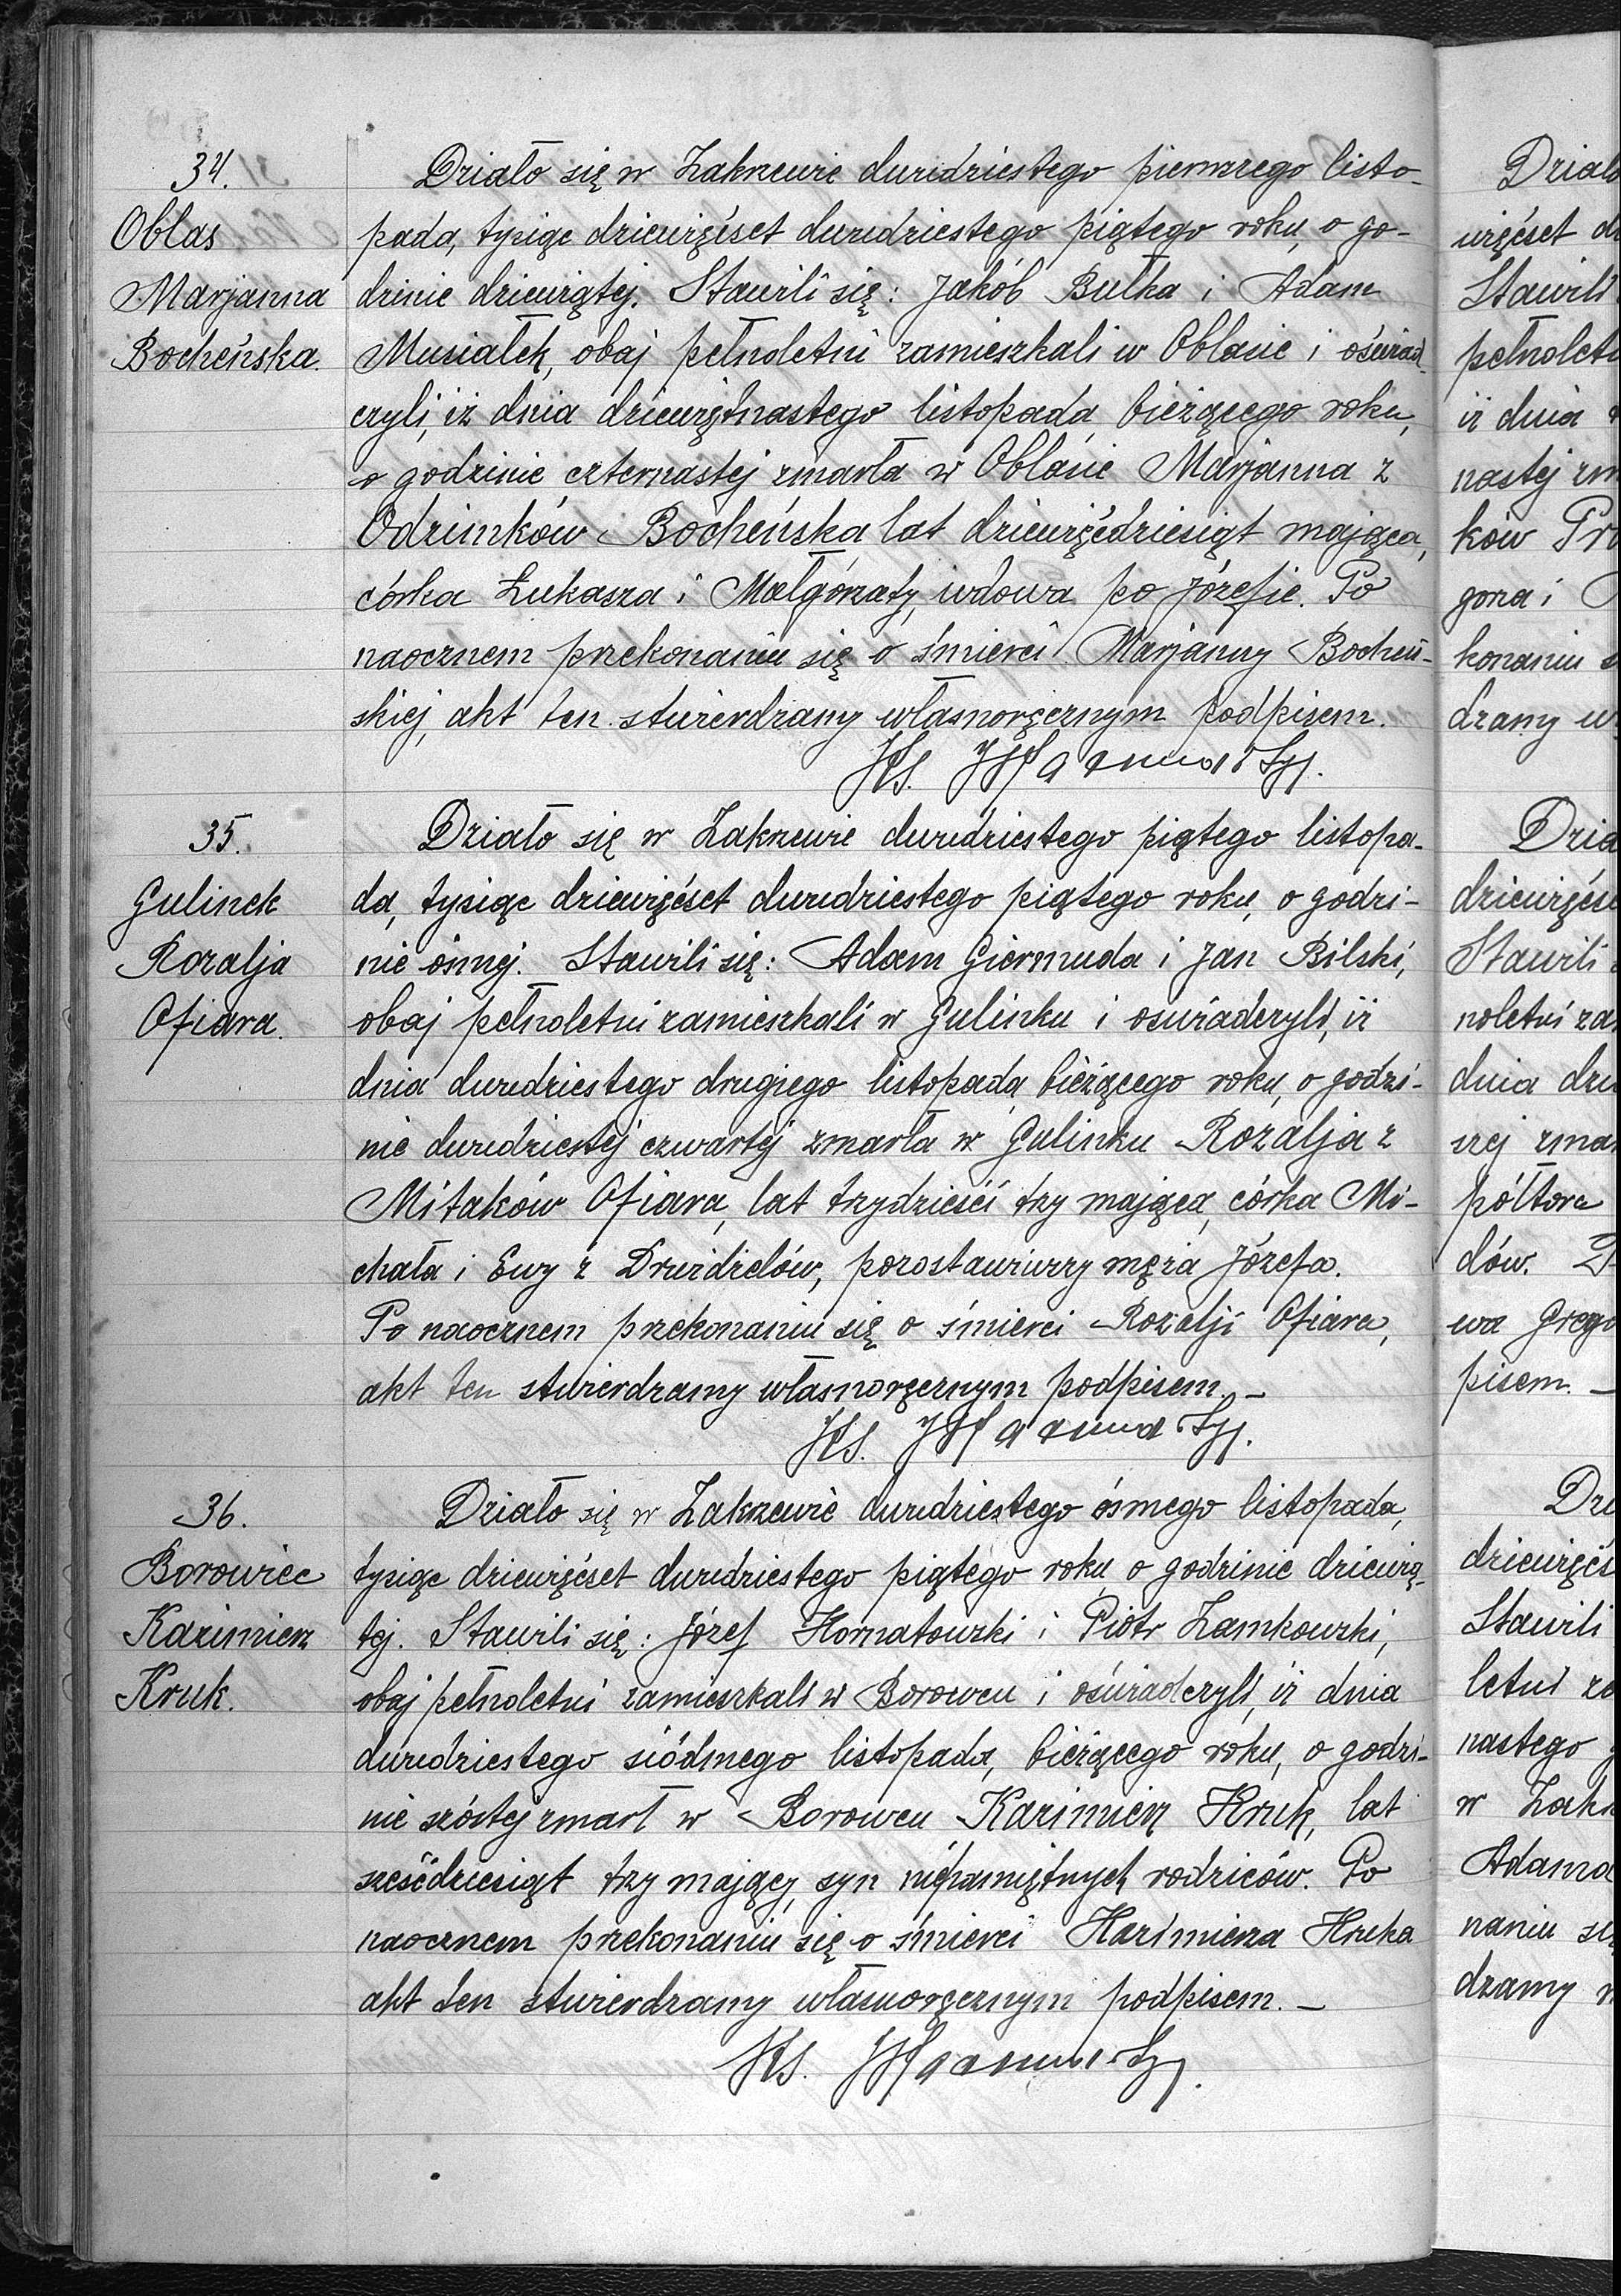 34.
Oblas
Marjanna
Bocheńska.
Działo się w Zakrzewie dwudziestego pierwszego listo-
pada, tysiąc dziewięćset dwudziestego piątego roku, o go-
dzinie dziewiątej. Stawili się: Jakób Bułka i Adam
Musiałek, obaj pełnoletni zamieszkali w Oblasie i oświad-
czyli, iż dnia dziewiętnastego listopada bieżącego roku,
o godzinie czternastej zmarła w Oblasie Marjanna z
Odzimków Bocheńska lat dziewięćdziesiąt mająca,
córka Łukasza i Małgorzaty, wdowa po Józefie. Po
naocznem przekonaniu się o śmierci Marjanny Bocheń-
skiej, akt ten stwierdzamy własnoręcznym podpisem.
Ks.
35.
Gulinek
Rozalja
Ofiara.
Działo się w Zakrzewie dwudziestego piątego listopa-
da, tysiąc dziewięćset dwudziestego piątego roku, o godzi-
nie ósmej. Stawili się: Adam Giermuda i Jan Bilski,
obaj pełnoletni zamieszkali w Gulinku i oświadczyli, iż
dnia dwudziestego drugiego listopada bieżącego roku, o godzi-
nie dwudziestej czwartej zmarła w Gulinku Rozalja z
Mitaków Ofiara, lat trzydzieści trzy mająca, córka Mi-
chała i Ewy z Druździelów, pozostawiwszy męża Józefa.
Po naocznem przekonaniu się o śmierci Rozalji Ofiara,
akt ten stwierdzamy własnoręcznym podpisem. -
Ks.
36.
Borowiec
Kazimierz
Kruk.
Działo się w Zakrzewie dwudziestego ósmego listopada,
tysiąc dziewięćset dwudziestego piątego roku o godzinie dziewią-
tej. Stawili się: Józef Kornatowski i Piotr Zamkowski,
obaj pełnoletni zamieszkali w Borowcu i oświadczyli, iż dnia
dwudziestego siódmego listopada, bieżącego roku, o godzi-
nie szóstej zmarł w Borowcu Kazimierz Kruk, lat
sześćdziesiąt trzy mający, syn niepamiętnych rodziców. Po
naocznem przekonaniu się o śmierci Kazimierza Kruka
akt ten stwierdzamy własnoręcznym podpisem. -
Ks.
Działo
więćset
Stawili
pełnoletn
iż dnia
nastej zm
ków
gorza i
konaniu s
dzamy w
Dzia
dziewięćse
Stawili
noletni za
dnia dzi
szej zma
półtora
dów.
wa Grego
pisem. -
Dzi
dziewięćs
Stawili
letni za
nastego
w Zakr
Adama
naniu się
dzamy